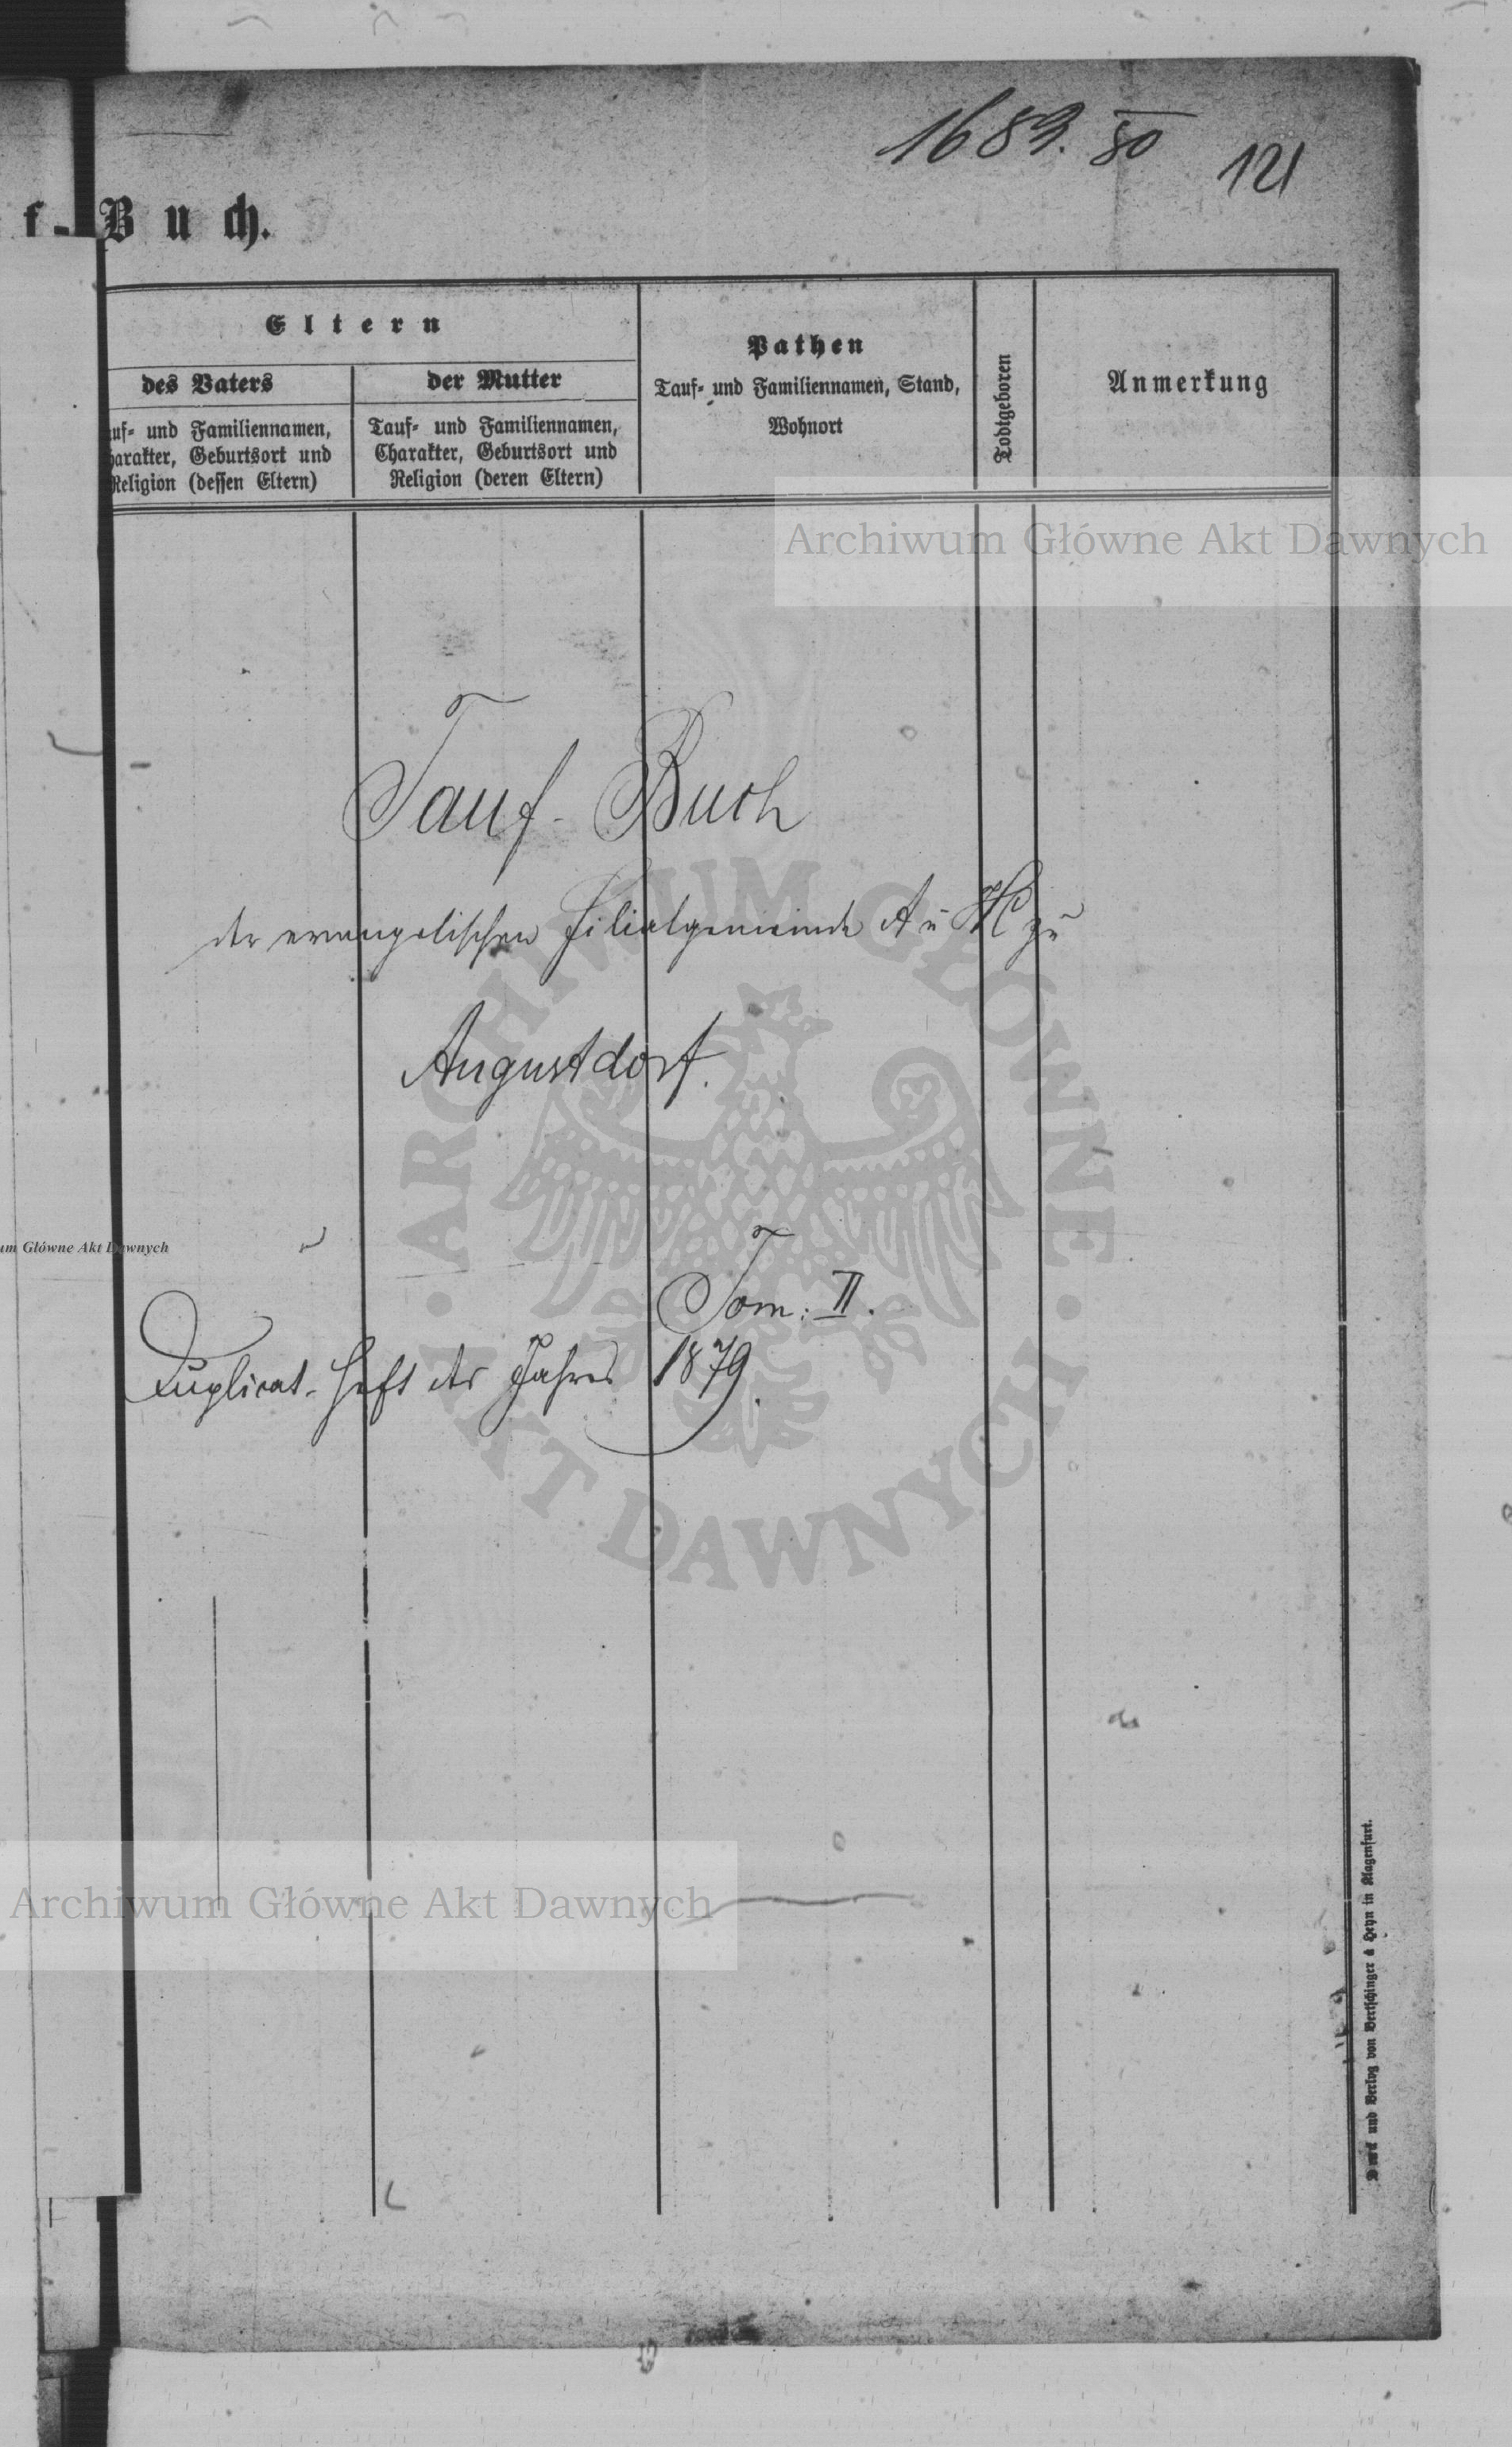 1689. 80
121
f - Buch.
Eltern
des Vaters
der Mutter
Pathen
Tauf- und Familiennamen, Stand,
Wohnort
Todtgeboren
Anmerkung
auf- und Familiennamen,
harakter, Geburtsort und
Religion (dessen Eltern)
Tauf- und Familiennamen,
Charakter, Geburtsort und
Religion (deren Eltern)
Archiwum Główne Akt Dawnych
Tauf- Buch
der evangelischen Filialgemeinde A u H zu
Augustdorf.
ARCHIWUM GŁÓWNE AKT DAWNYCH
um Główne Akt Dawnych
Tom: II.
Duplicat-Heft des Jahres 1879.
Archiwum Główne Akt Dawnych
Druck und Verlag von Bertschinger & Heyn in Klagenfurt.